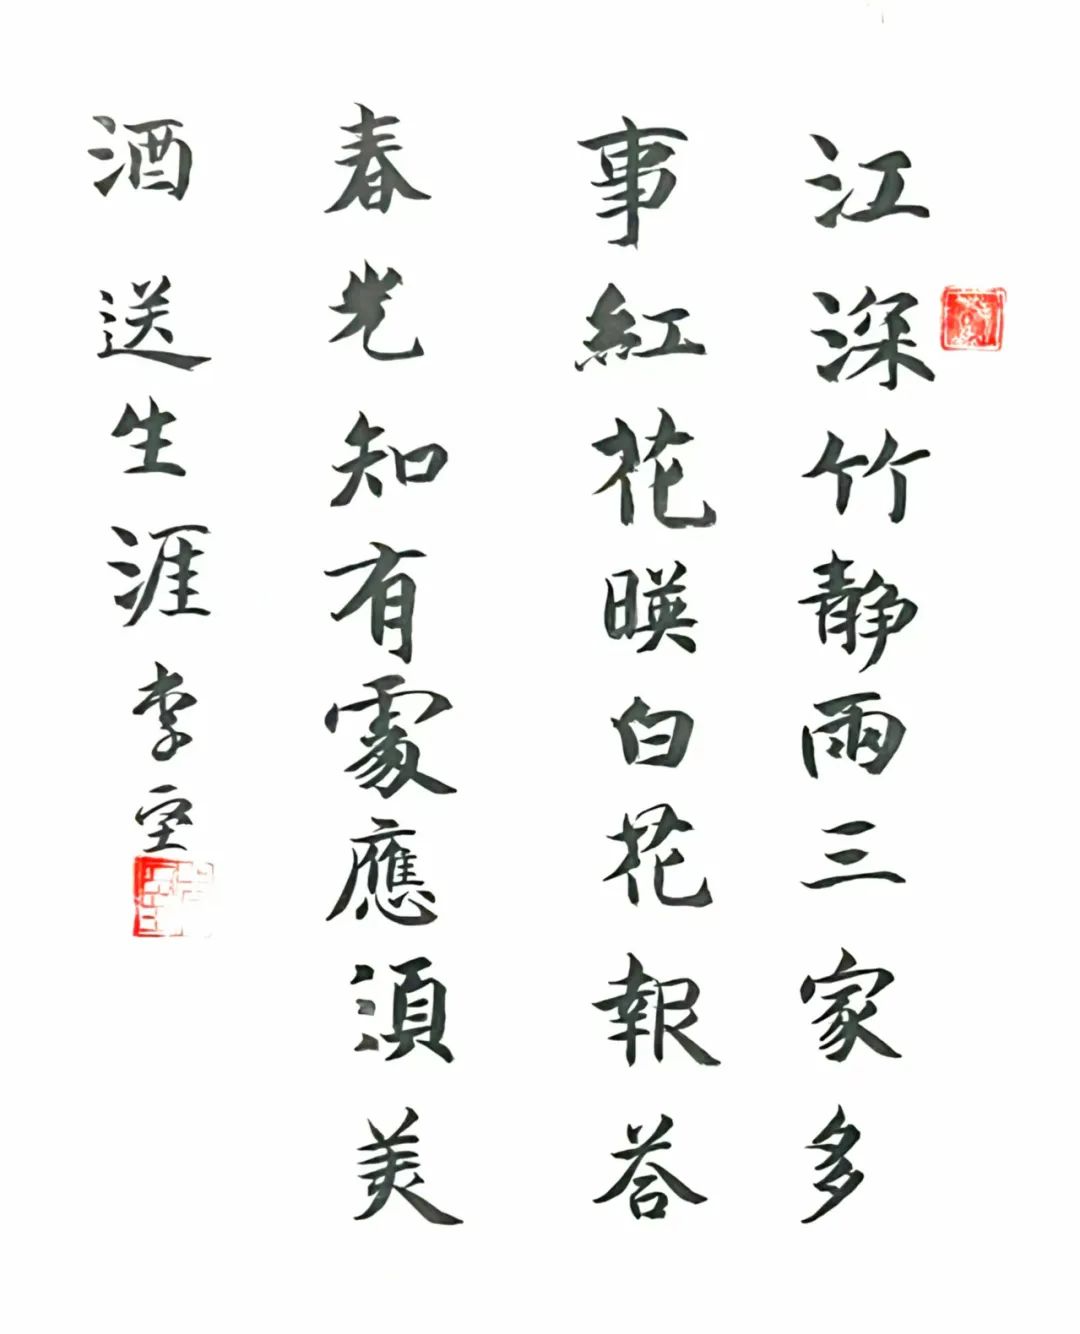 江深竹静兩三家多
事紅花暎白花報荅
春光知有處應湏美
酒送生涯 李